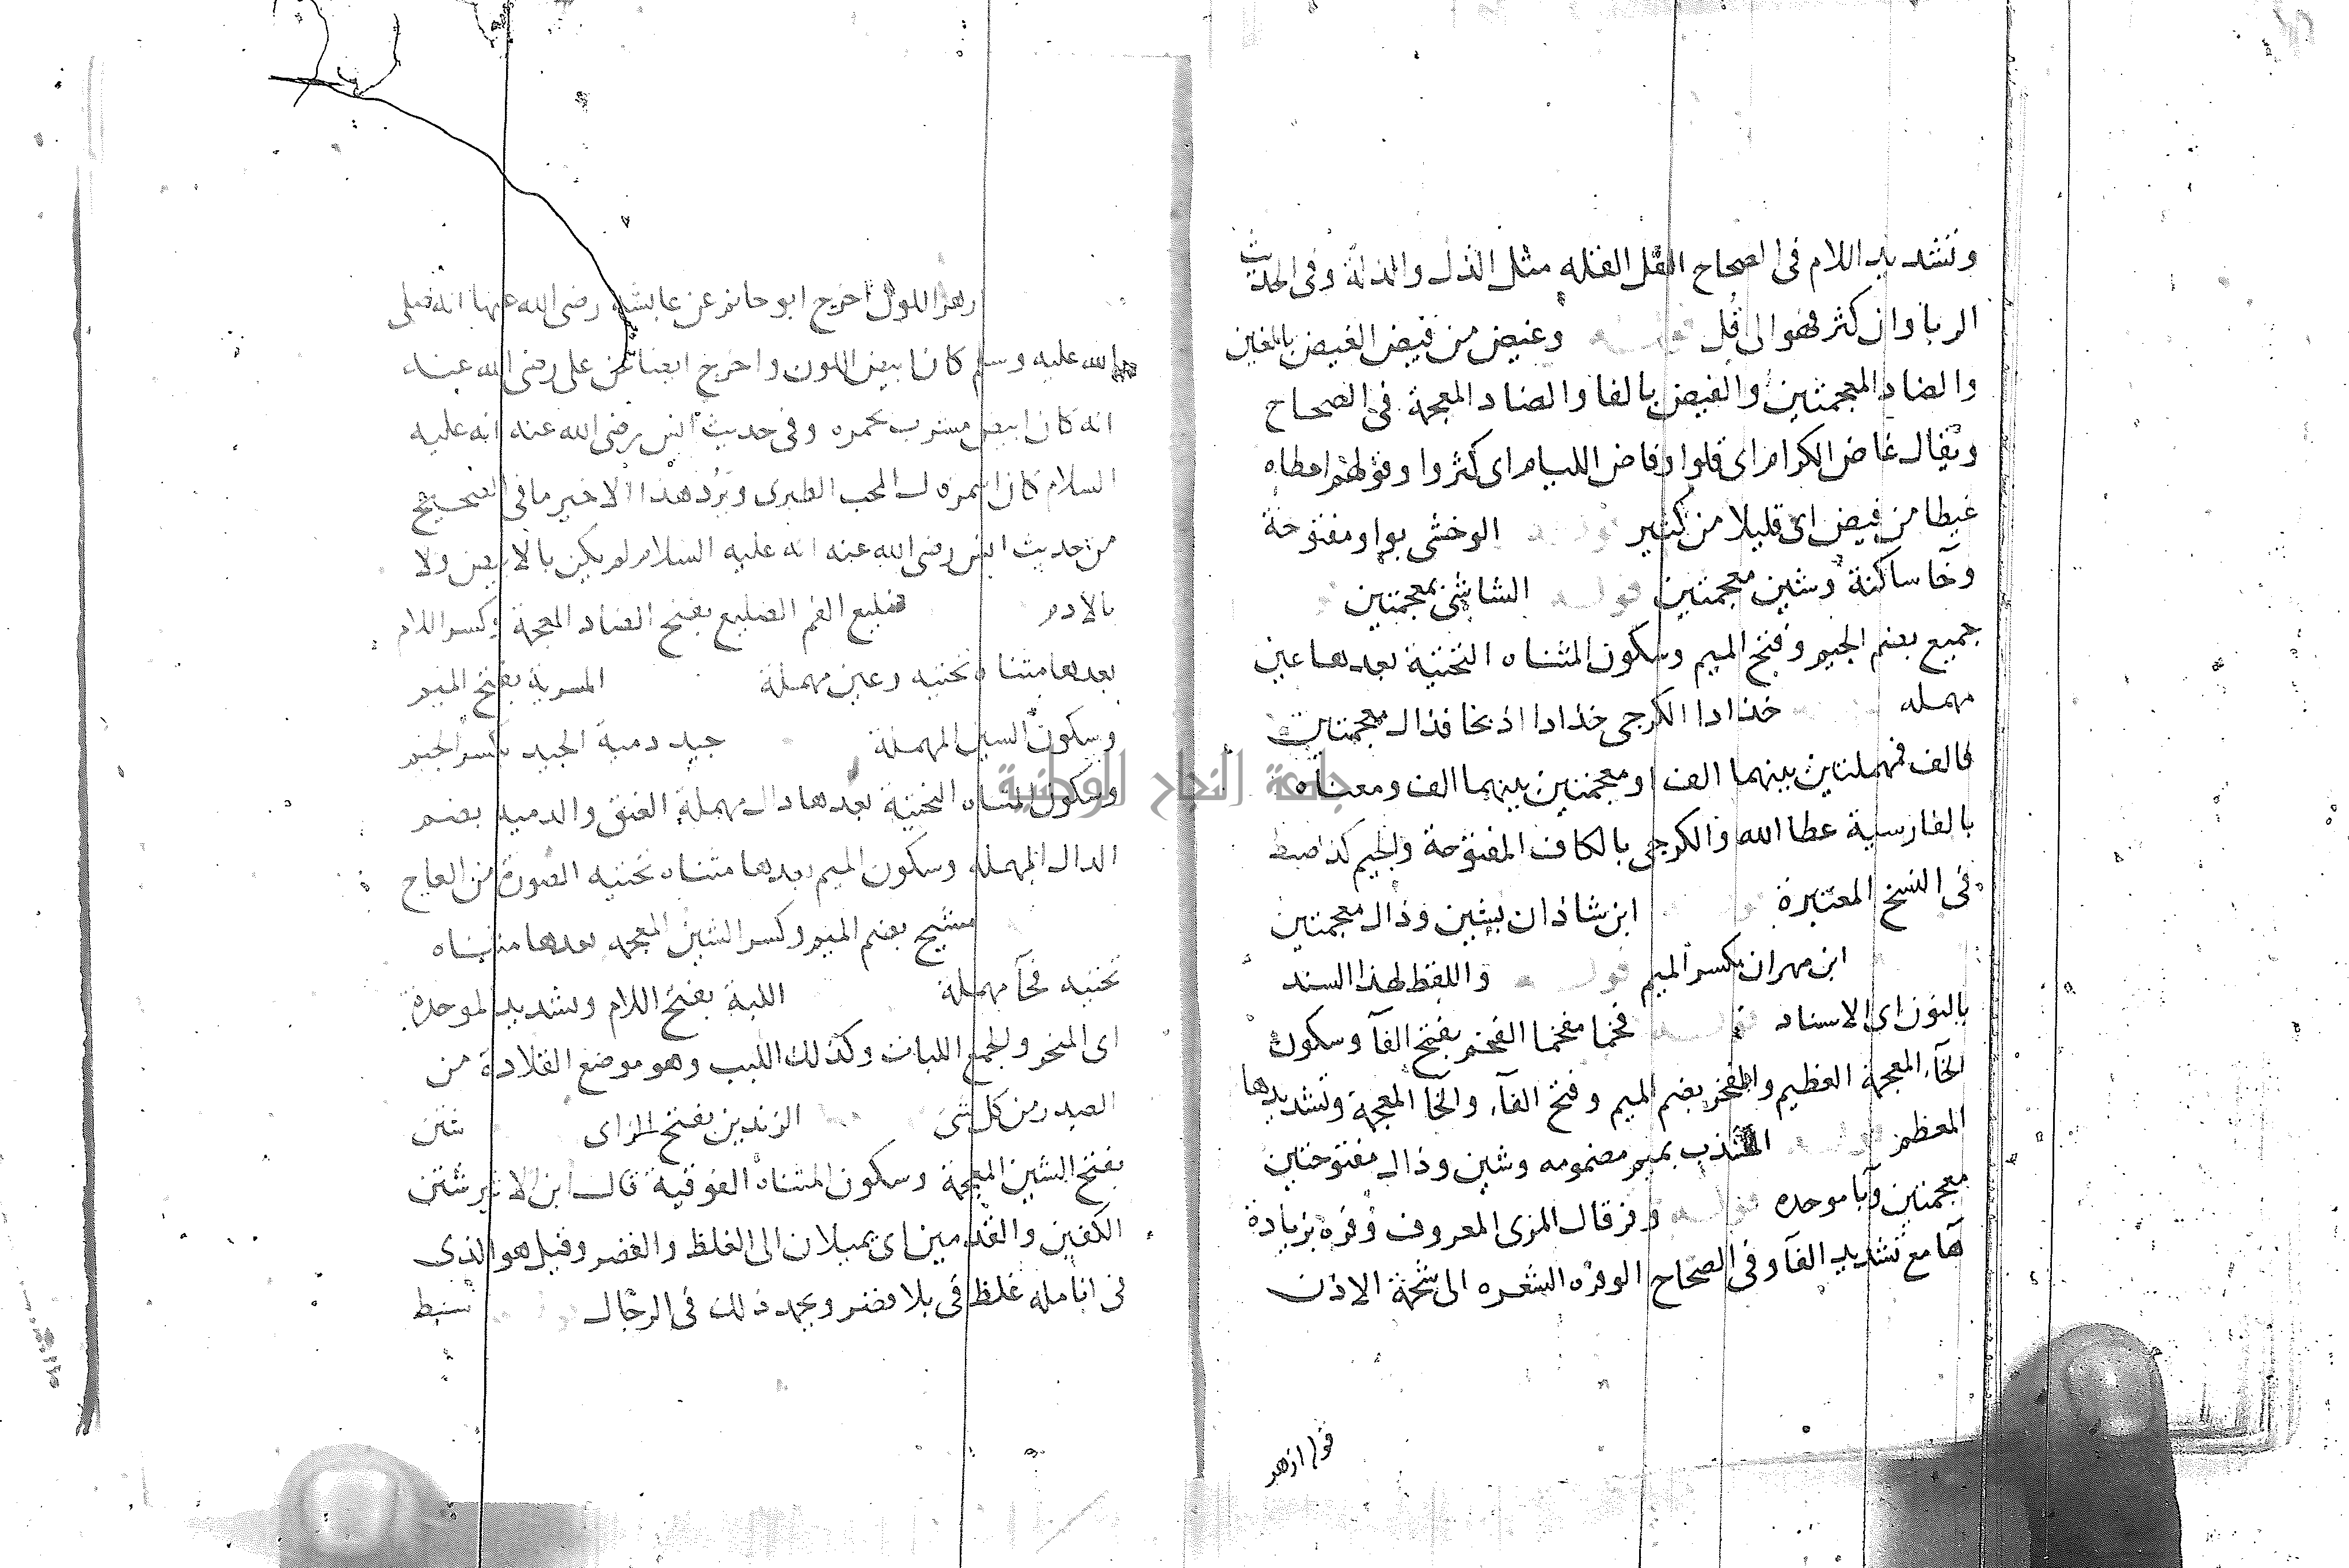 وتشديد اللام فى الصحاح القل القله مثل الذل والذلة وفى الحديث
الربا وان كثر فهو الى قل قوله وغيض من فيض الغيض بالغين
والضاد المعجمتين والفيض بالفا والضاد المعجمة فى الصحاح
ويقال غاض الكرام اى قلوا وفاض الليام اى كثروا وقولهم اعطاه
غيطا من فيض اى قليلا من كثير قوله الوخشى بواو مفتوحة
وخا ساكنة وشين معجمتين قوله الشاشى بمعجمتين
جميع بضم الجيم وفتح الميم وسكون المثناه التحتية بعدها عين
مهمله خذادا الكرجى خذادا اذ بخا فذال معجمتين
فالف فمهملتين بينهما الف او معجمتين بينهما الف ومعناه
بالفارسية عطا الله والكرجى بالكاف المفتوحة والجيم كذا ضبط
فى النسخ المعتبرة ابن شاذان بشين وذال معجمتين
ابن مهران بكسر الميم قوله واللفظ لهذا السند
بالنون اى الاسناد قوله فخما مفخما الفخم بفتح الفآ وسكون
الخآء المعجمة العظيم والمفخم بضم الميم وفتح الفآء والخآ المعجمة وتشديدها
المعظم قوله المشذب بميم مضمومه وشين وذال مفتوحتين
معجمتين وبا موحده قوله وفر قال المزى المعروف وفره بزيادة
هآ مع تشديد الفآ وفى الصحاح الوفره الشعره الى شحمة الاذن
قوله ازهر
ازهر اللون اخرج ابو حاتم عن عايشه رضى الله عنها انه صلى
الله عليه وسلم كان ابيض اللون واخرج ايضا عن على رضى الله عنه
انه كان ابيض مشرب بحمره وفى حديث انس رضى الله عنه انه عليه
السلام كان اسمر قال المحب الطبرى ويرد هذا الاخير ما فى الصحيح
من حديث انس رضى الله عنه انه عليه السلام لم يكن بالابيض ولا
بالادم ضليع الفم الضليع بفتح الضاد المعجمة وكسر اللام
بعدها مثناه تحتيه وعين مهملة المسربة بفتح الميم
وسكون السين المهملة جيد دمية الجيد بكسر الجيم
وسكون المثناه التحتية بعدها دال مهملة العنق والدميه بضم
الدال المهمله وسكون الميم بعدها مثناه تحتيه الصورة من العاج
مشيح بضم الميم وكسر الشين المعجمه بعدها مثناه
تحتيه فحآ مهملة اللبة بفتح اللام وتشديد الموحدة
اى المنحر والجمع اللبات وكذلك اللبب وهو موضع القلادة من
الصدر من كل شى الزندين بفتح الزاى شثن
بفتح الشين المعجمة وسكون المثناه الفوقية قال ابن الاثير شثن
الكفين والقدمين اى يميلان الى الغلظ والقصر وقيل هو الذى
فى انامله غلظ فى بلا قصر ويحمد ذلك فى الرجال سبط
جامعة النجاح الوطنية